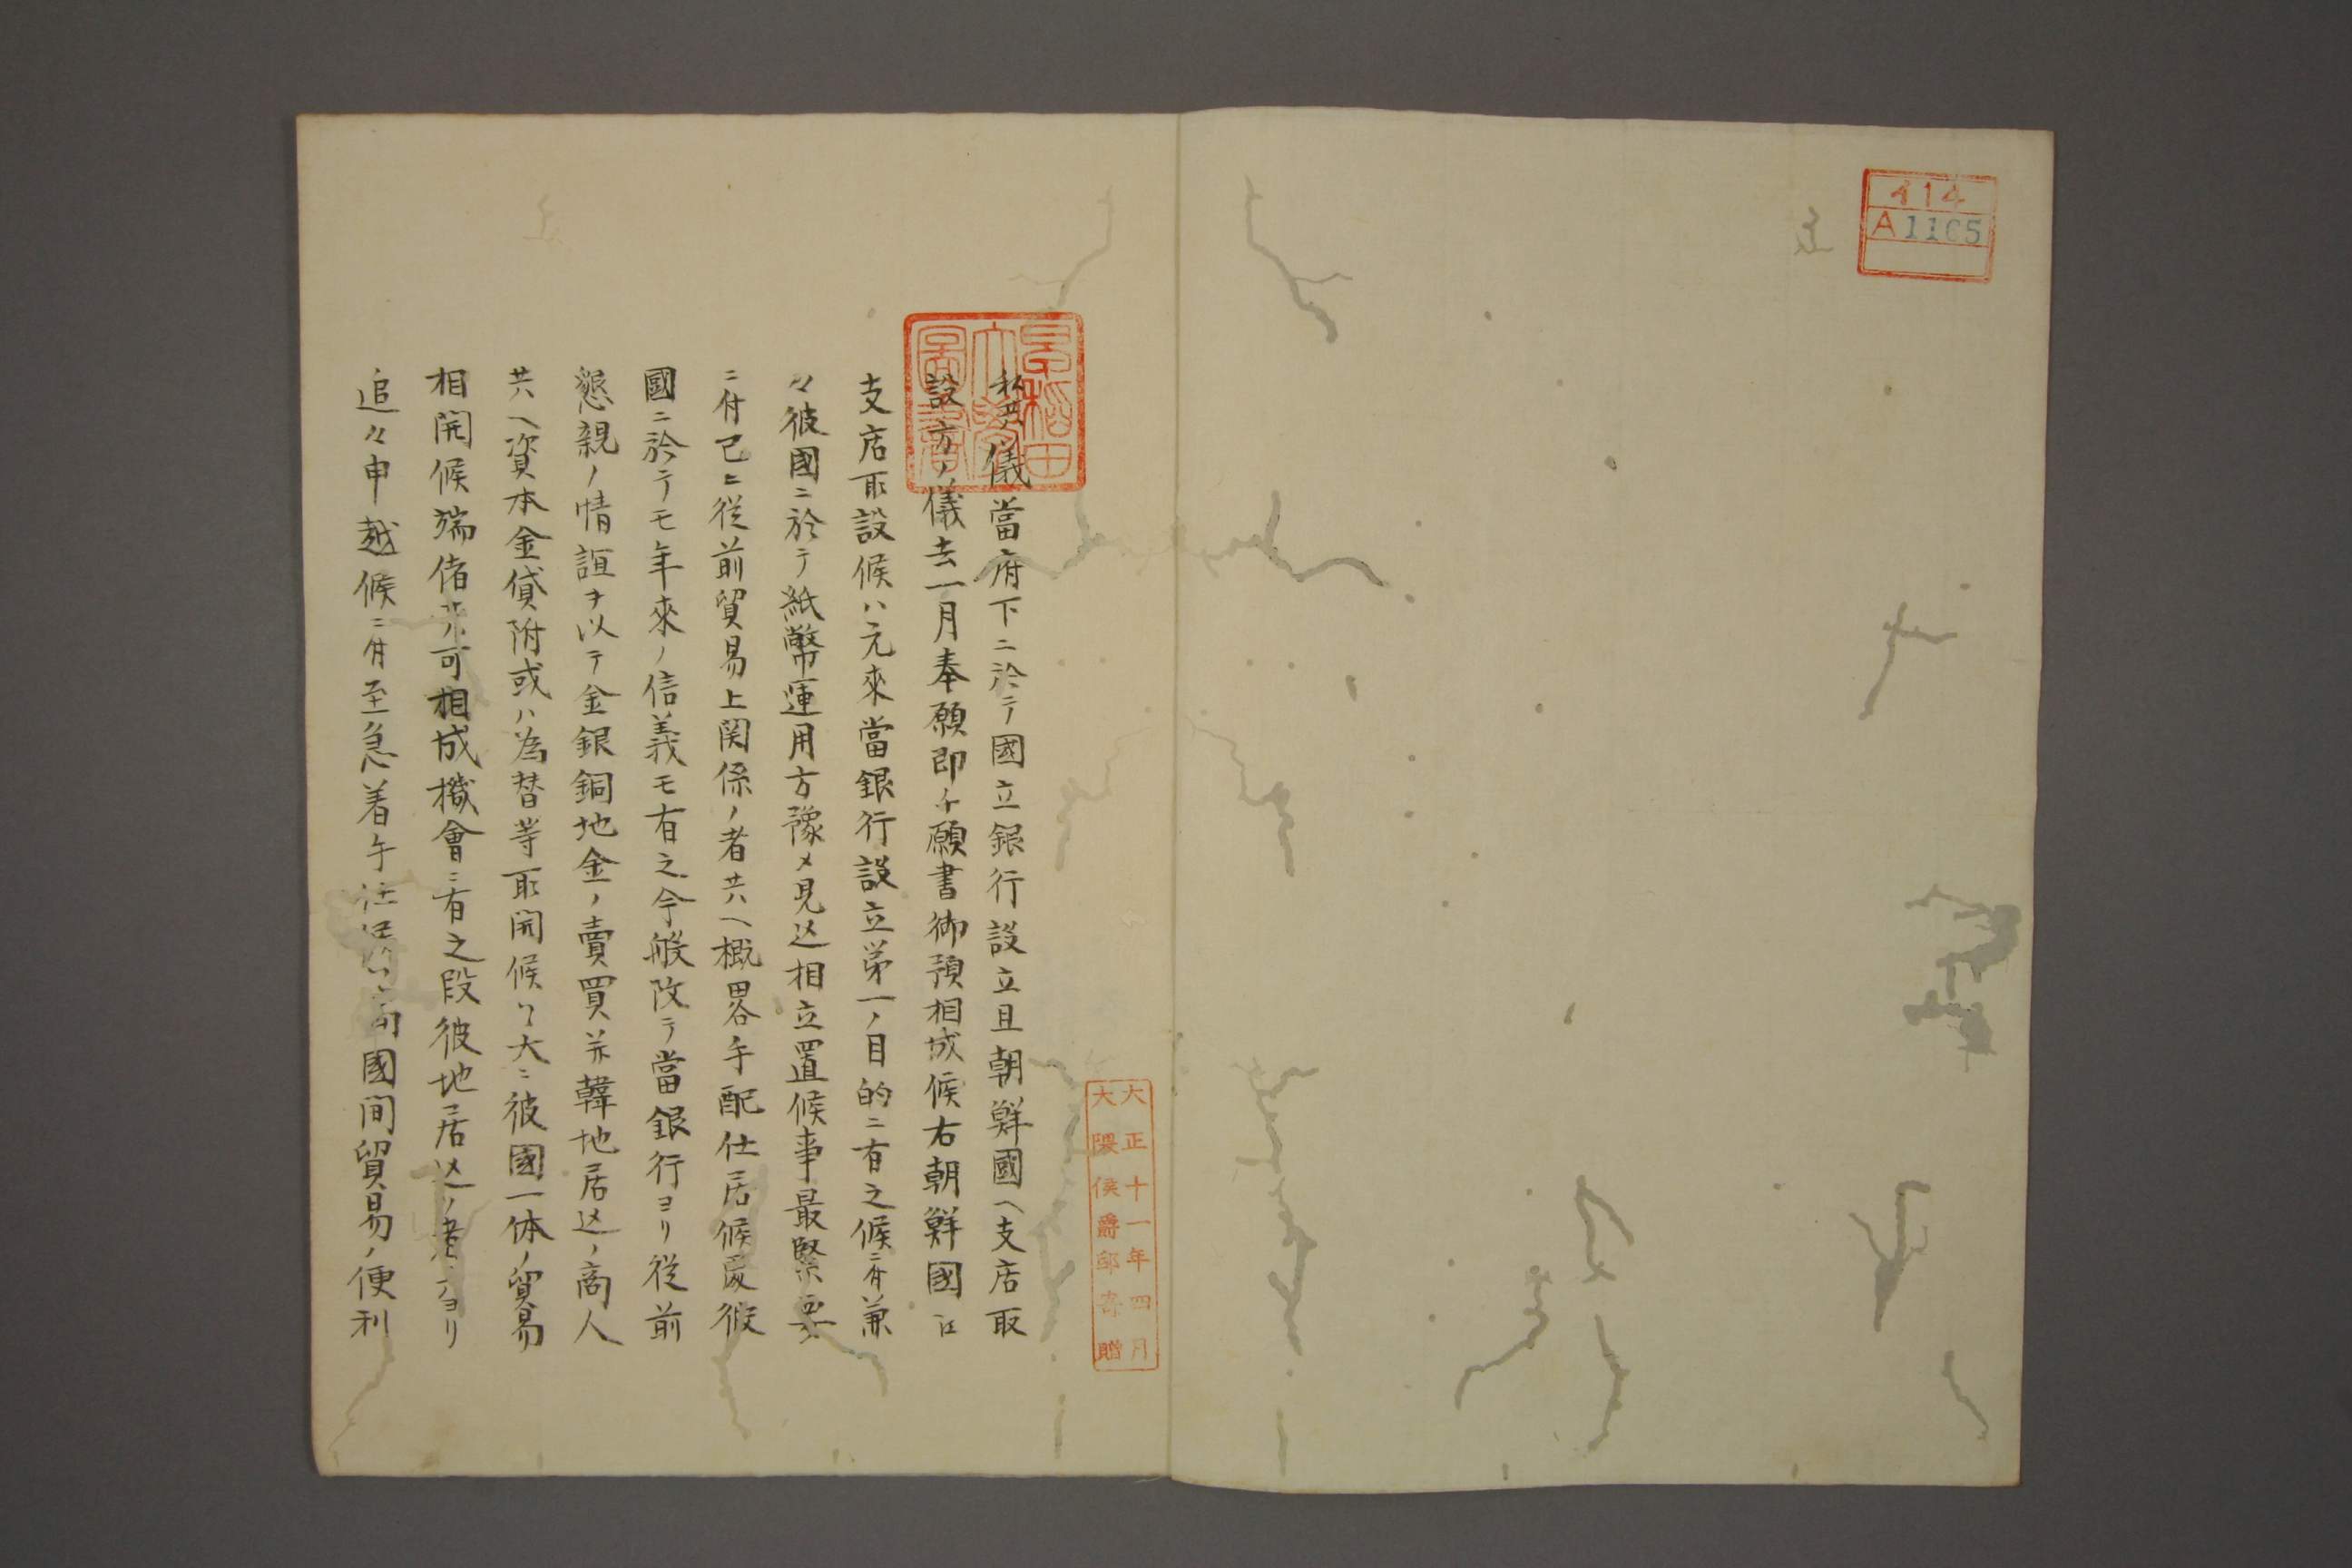 414
A1105
大正十一年四月
大隈侯爵邸寄贈
早稲田
大學
圖書
私共儀當府下ニ於テ國立銀行設立且朝鮮國ヘ支店取
設方ノ儀去一月奉願即チ願書御預相成候右朝鮮國江
支店取設候ハ元來當銀行設立第一ノ目的ニ有之候ニ付兼
々彼國ニ於テ紙幣運用方豫メ見込相立置候事最緊要
ニ付已ニ從前貿易上関係ノ者共ヘ概畧手配仕居候処彼
國ニ於テモ年來ノ信義モ有之今般改テ當銀行ヨリ從前
懇親ノ情誼ヲ以テ金銀銅地金ノ賣買并韓地居込ノ商人
共ヘ資本金貸附或ハ為替等取開候ハヽ大ニ彼國一体ノ貿易
相開候端偖共可相成機會ニ有之段彼地居込ノ者ヨリ
追々申越候ニ付至急着手仕 國間貿易ノ便利